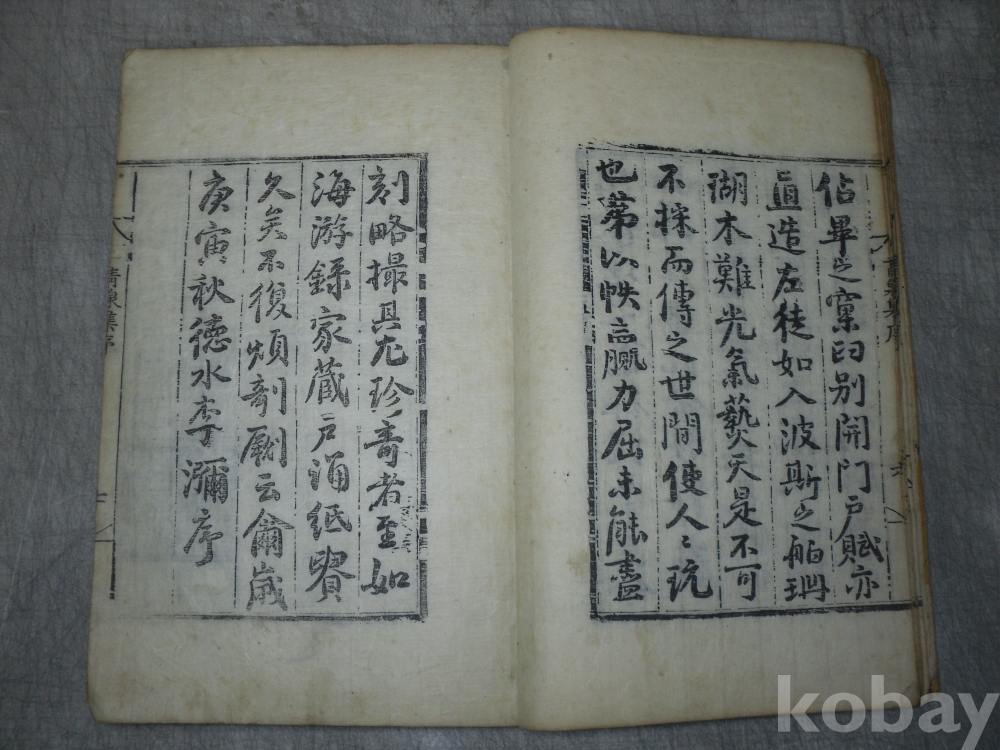 佔畢之窠臼別開門戶賦亦
直造左徒如入波斯之舶珊
瑚木難光氣爇天是不可
不採而傳之世間使人〻玩
也第以帙高贏力屈未能盡
刻略撮其尤珍奇者至如
海游錄家藏戶誦紙貴
久矣不復煩剞劂云爾歲
庚寅秋德水李瀰序
青泉集序
kobay